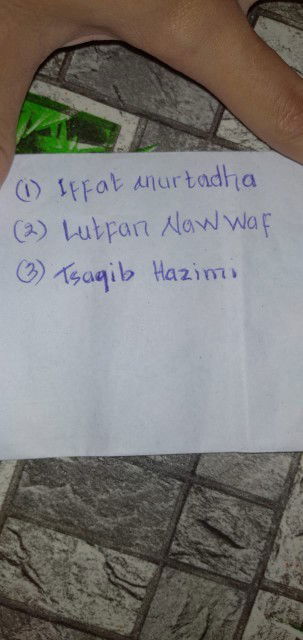 (1) Iffat Murtadha
(2) Lutfan Nawwaf
(3) Tsaqib Hazimi